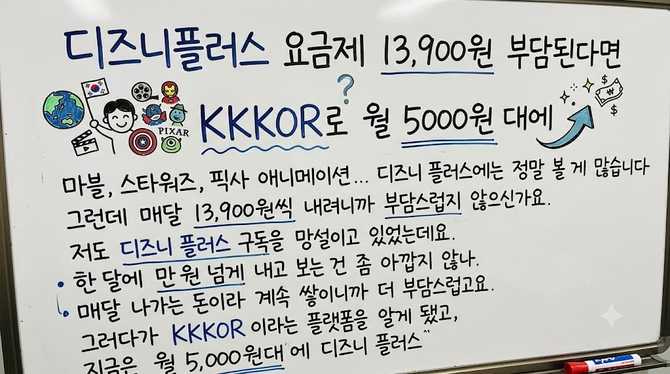 디즈니플러스 요금제 13,900원 부담된다면
?
KKKOR로 월 5000원 대에
PIXAR
마블, 스타워즈, 픽사 애니메이션... 디즈니 플러스에는 정말 볼 게 많습니다
그런데 매달 13,900원씩 내려니까 부담스럽지 않으신가요.
저도 디즈니 플러스 구독을 망설이고 있었는데요.
• 한 달에 만 원 넘게 내고 보는 건 좀 아깝지 않나.
매달 나가는 돈이라 계속 쌓이니까 더 부담스럽고요.
그러다가 KKKOR이라는 플랫폼을 알게 됐고,
지금은 월 5,000원대에 디즈니 플러스